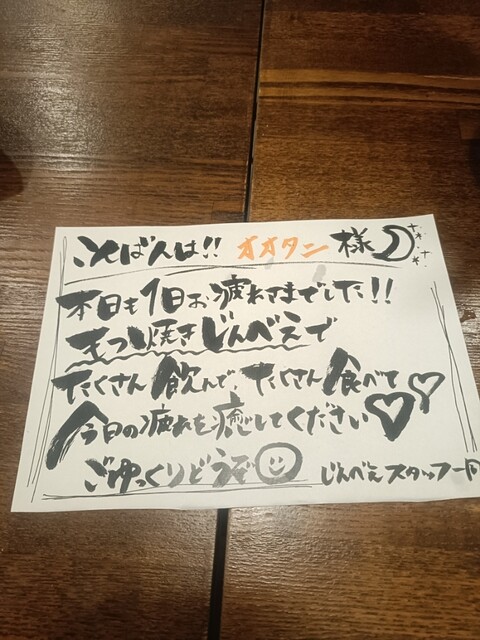 こんばんは!! オオタン 様
本日も1日お疲れさまでした!!
もつ焼きじんべえで
たくさん飲んで、たくさん食べて♡
今日の疲れを癒してください♡
ごゆっくりどうぞ☺ じんべえスタッフ一同